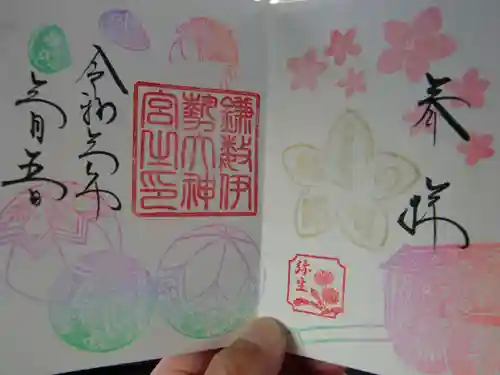 奉拝
弥生
鎌數伊
勢大神
宮之印
令和三年
三月五日